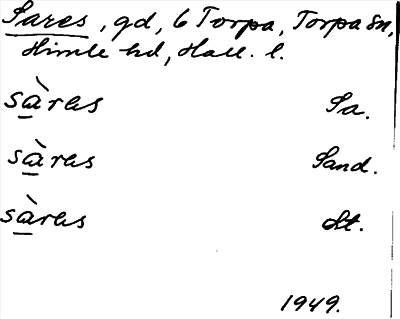 Sares, gd, 6 Torpa, Torpa sn,
Himle hd, Hall. l.
sàres Sa.
sàres Sand.
sàres St.
1949.